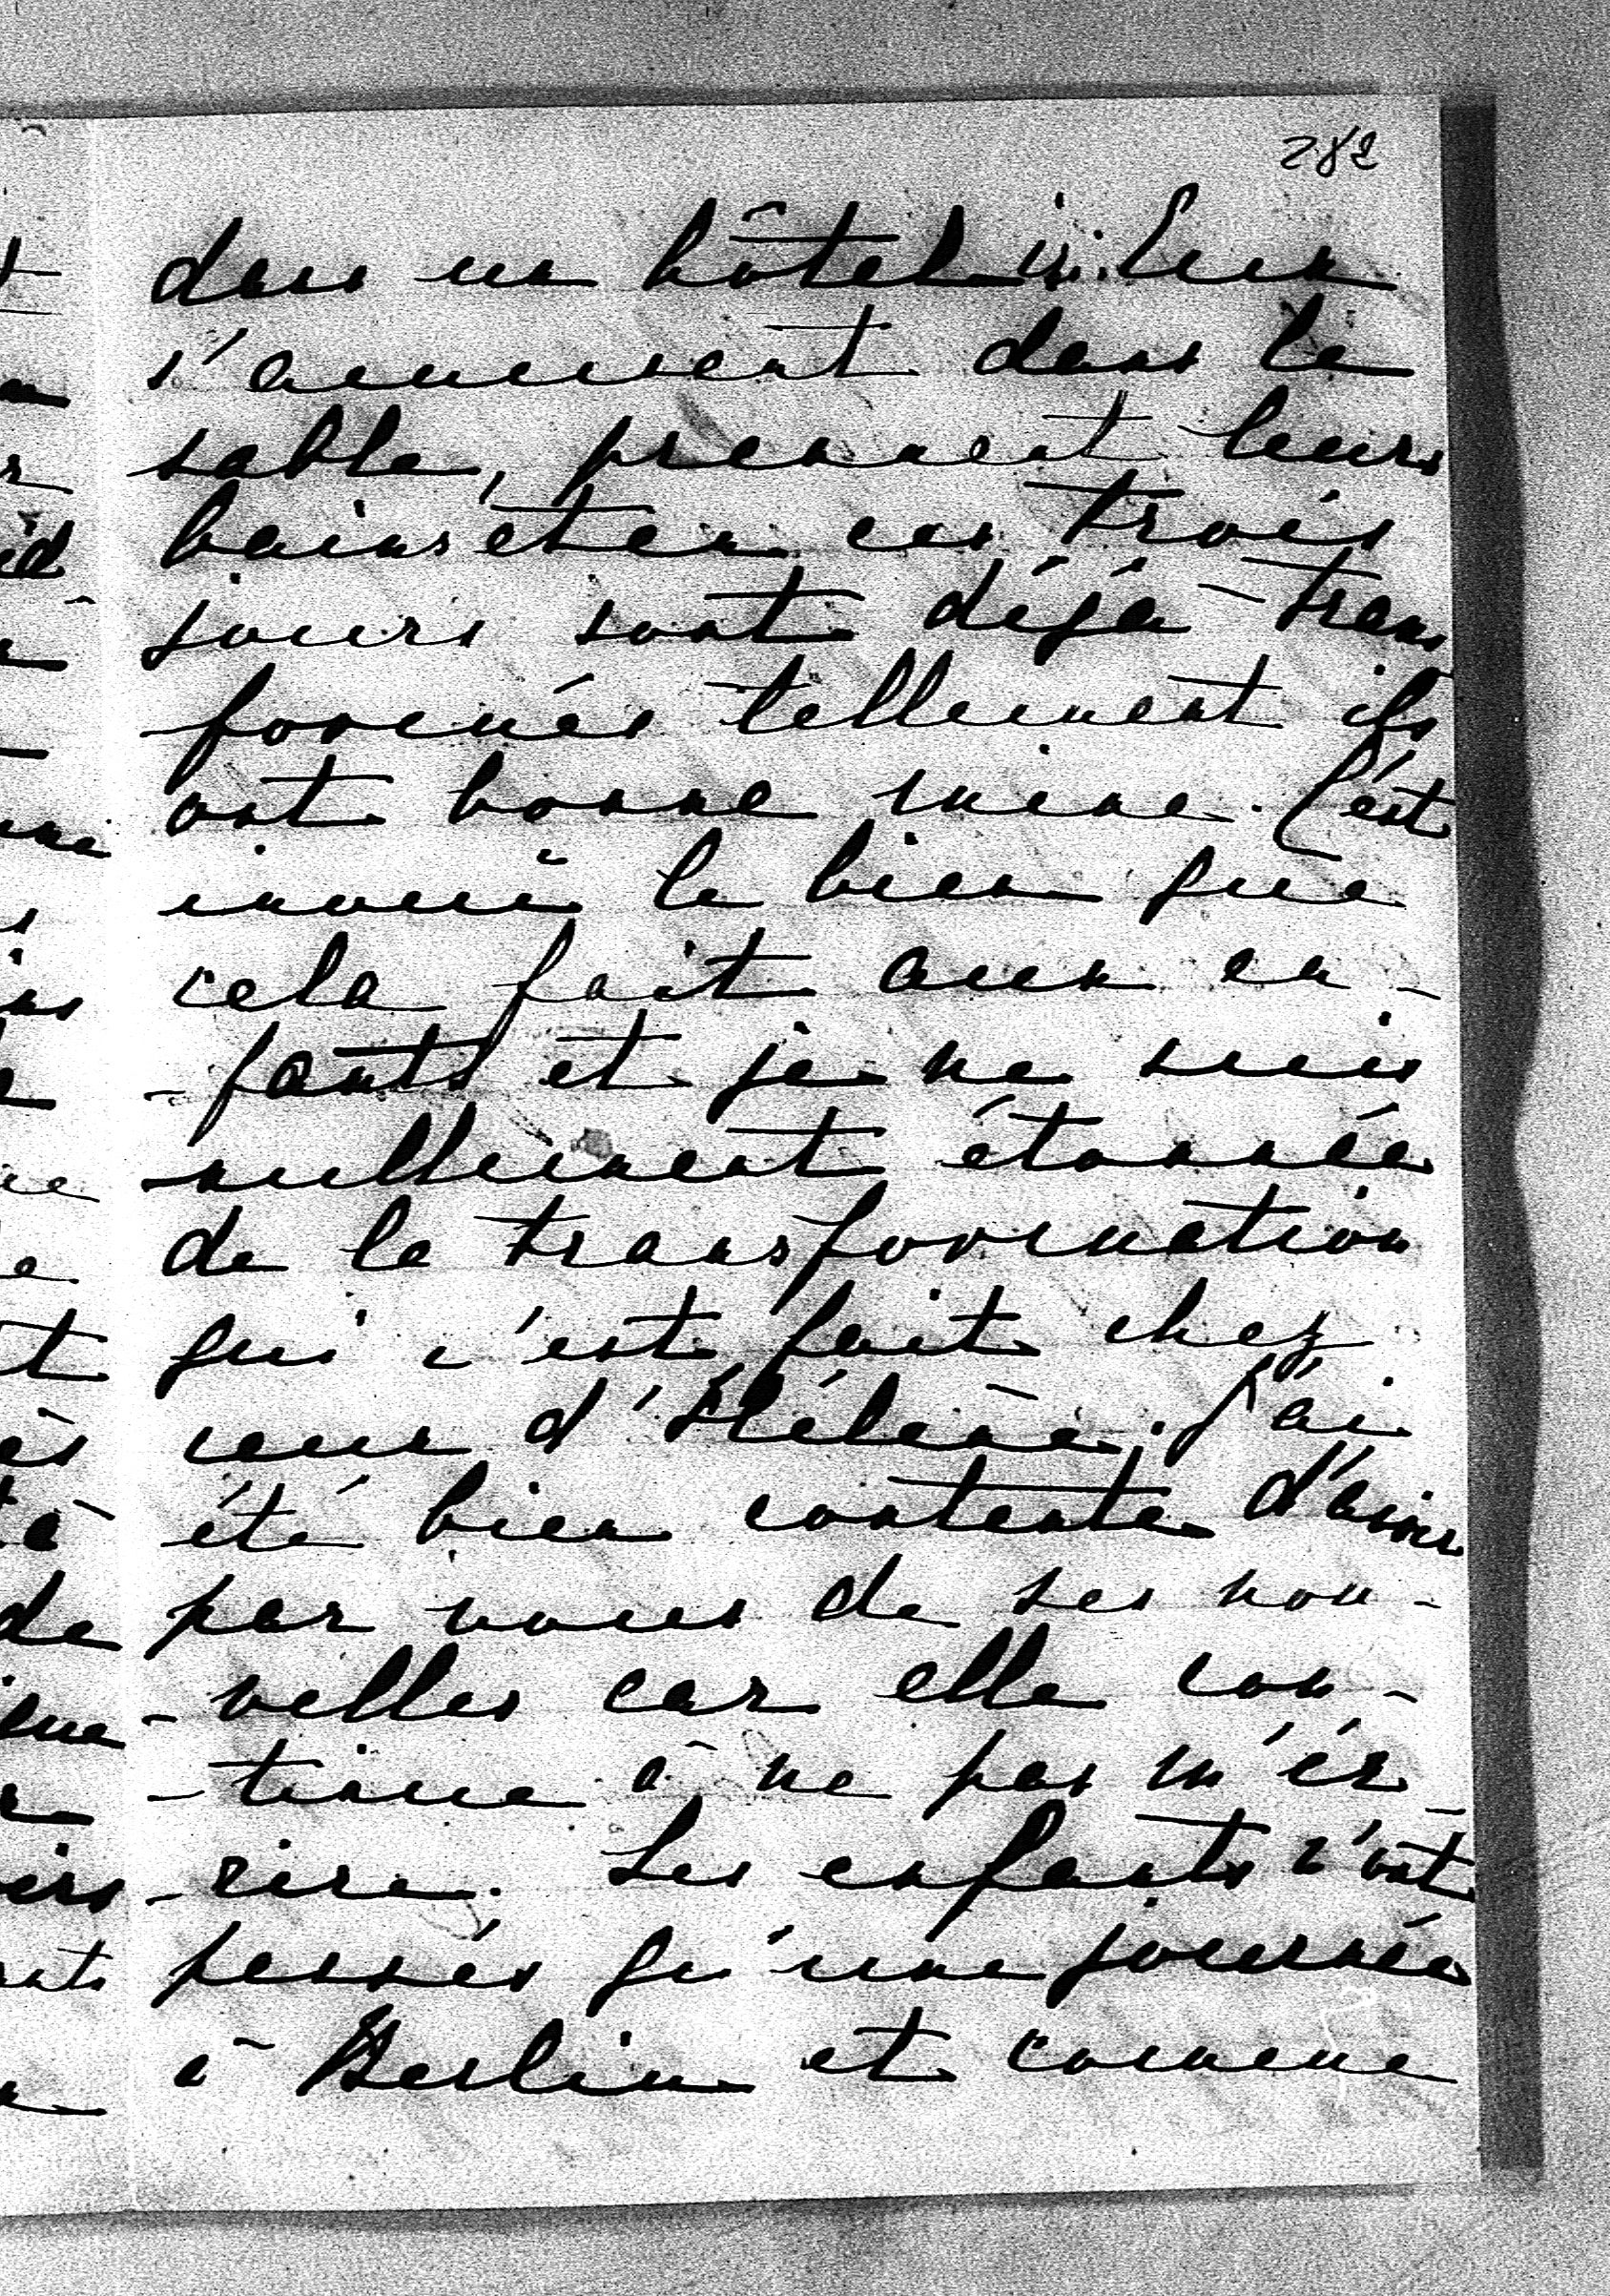 282
dans un hôtel ici. Eux
s'amusent dans le
sable, prennent leurs
bains et en ces trois
jours sont déjà trans
formés tellement ils
ont bonne mine. C'est
inouï le bien que
cela fait aux en-
-fants et je ne suis
nullement étonnée
de la transformation
qui s'est fait chez
ceux d'Hélène. J'ai
été bien contente d'avoir
par vous de ses nou-
-velles car elle con-
-tinue à ne pas m'éc-
-rire. Les enfants n'ont
passés qu'une journée
à Berlin et comme